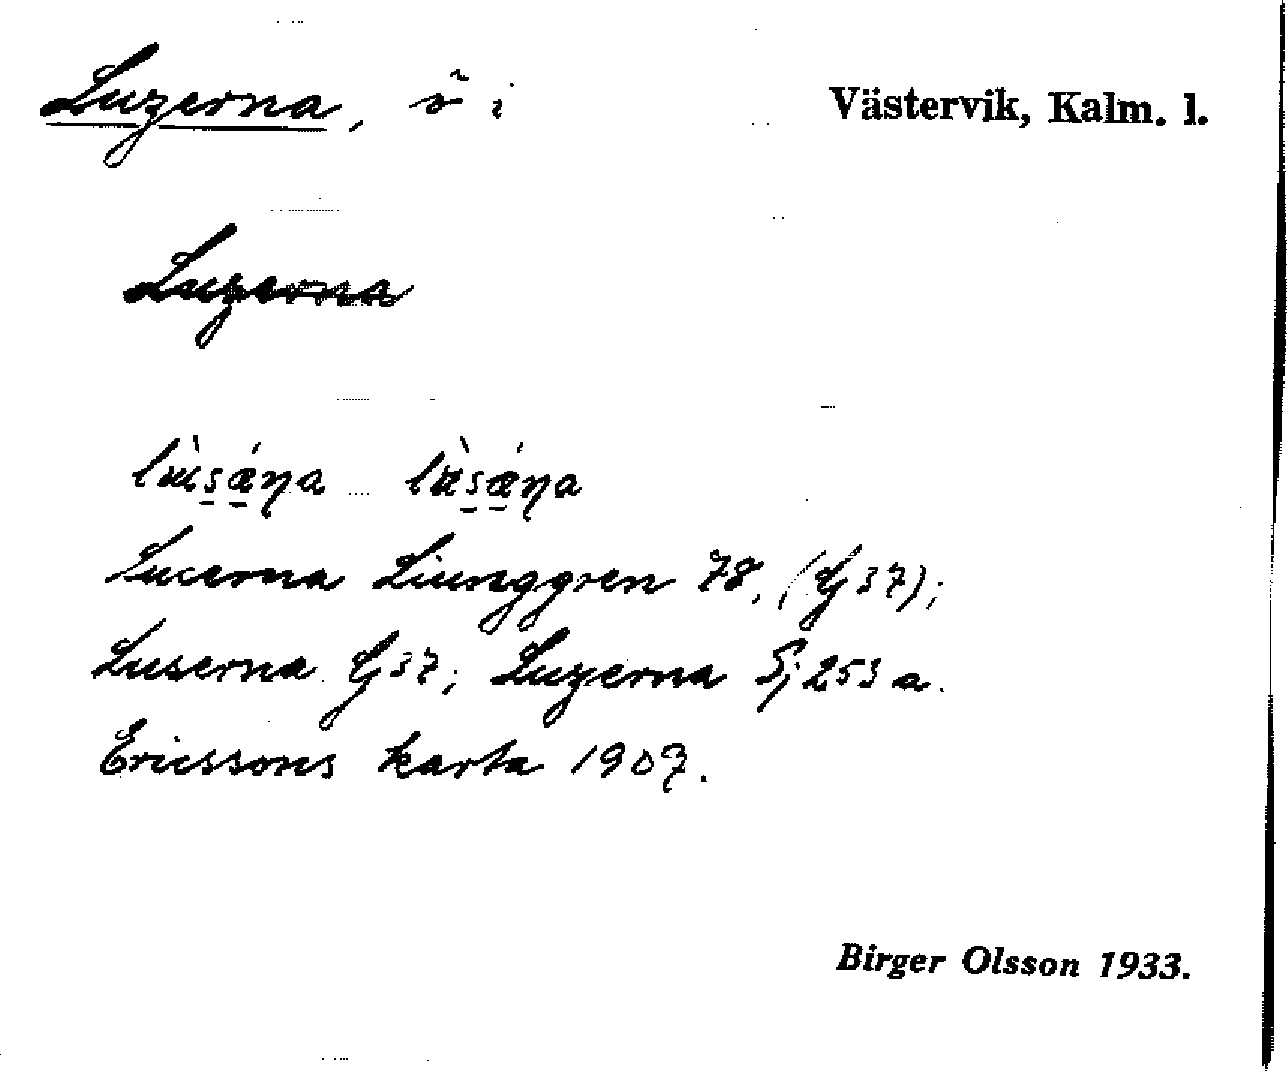 Luzerna, ö i Västervik, Kalm. l.
Luzerna
Lucerna Liunggren 78, (G 37);
Luserna G 37; Luzerna Sj 253 a.
Ericssons karta 1907.
Birger Olsson 1933.